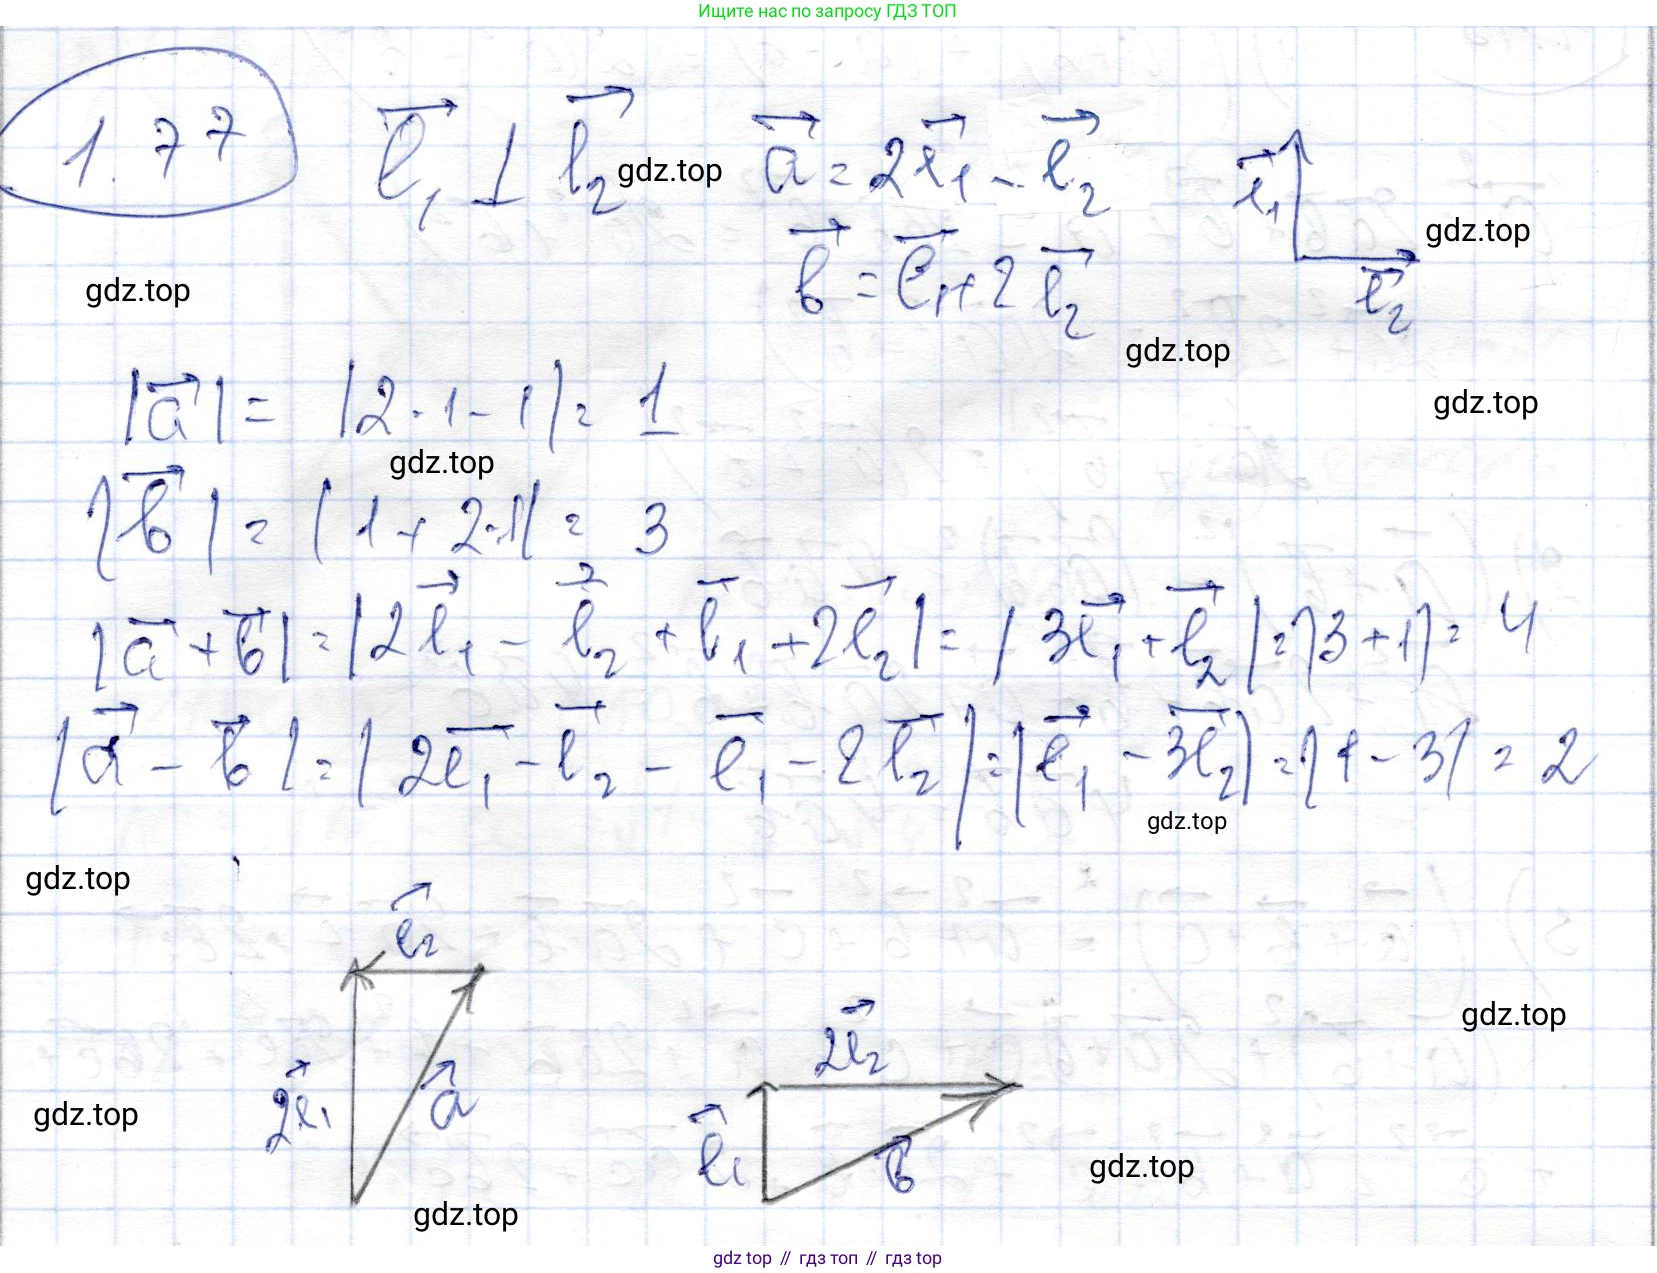 Ищите нас по запросу ГДЗ ТОП
1.77 e⃗₁ ⊥ e⃗₂ gdz.top a⃗ = 2e⃗₁ - e⃗₂ e⃗₁
gdz.top b⃗ = e⃗₁ + 2e⃗₂ e⃗₂ gdz.top
gdz.top
|a⃗| = |2·1 - 1| = 1 gdz.top
gdz.top
|b⃗| = |1 + 2·1| = 3
|a⃗ + b⃗| = |2e⃗₁ - e⃗₂ + e⃗₁ + 2e⃗₂| = |3e⃗₁ + e⃗₂| = |3 + 1| = 4
|a⃗ - b⃗| = |2e⃗₁ - e⃗₂ - e⃗₁ - 2e⃗₂| = |e⃗₁ - 3e⃗₂| = |1 - 3| = 2
gdz.top
gdz.top
e⃗₂
gdz.top
2e⃗₁ a⃗ 2e⃗₂
gdz.top e⃗₁ b⃗ gdz.top
gdz.top
gdz top // гдз топ // gdz top